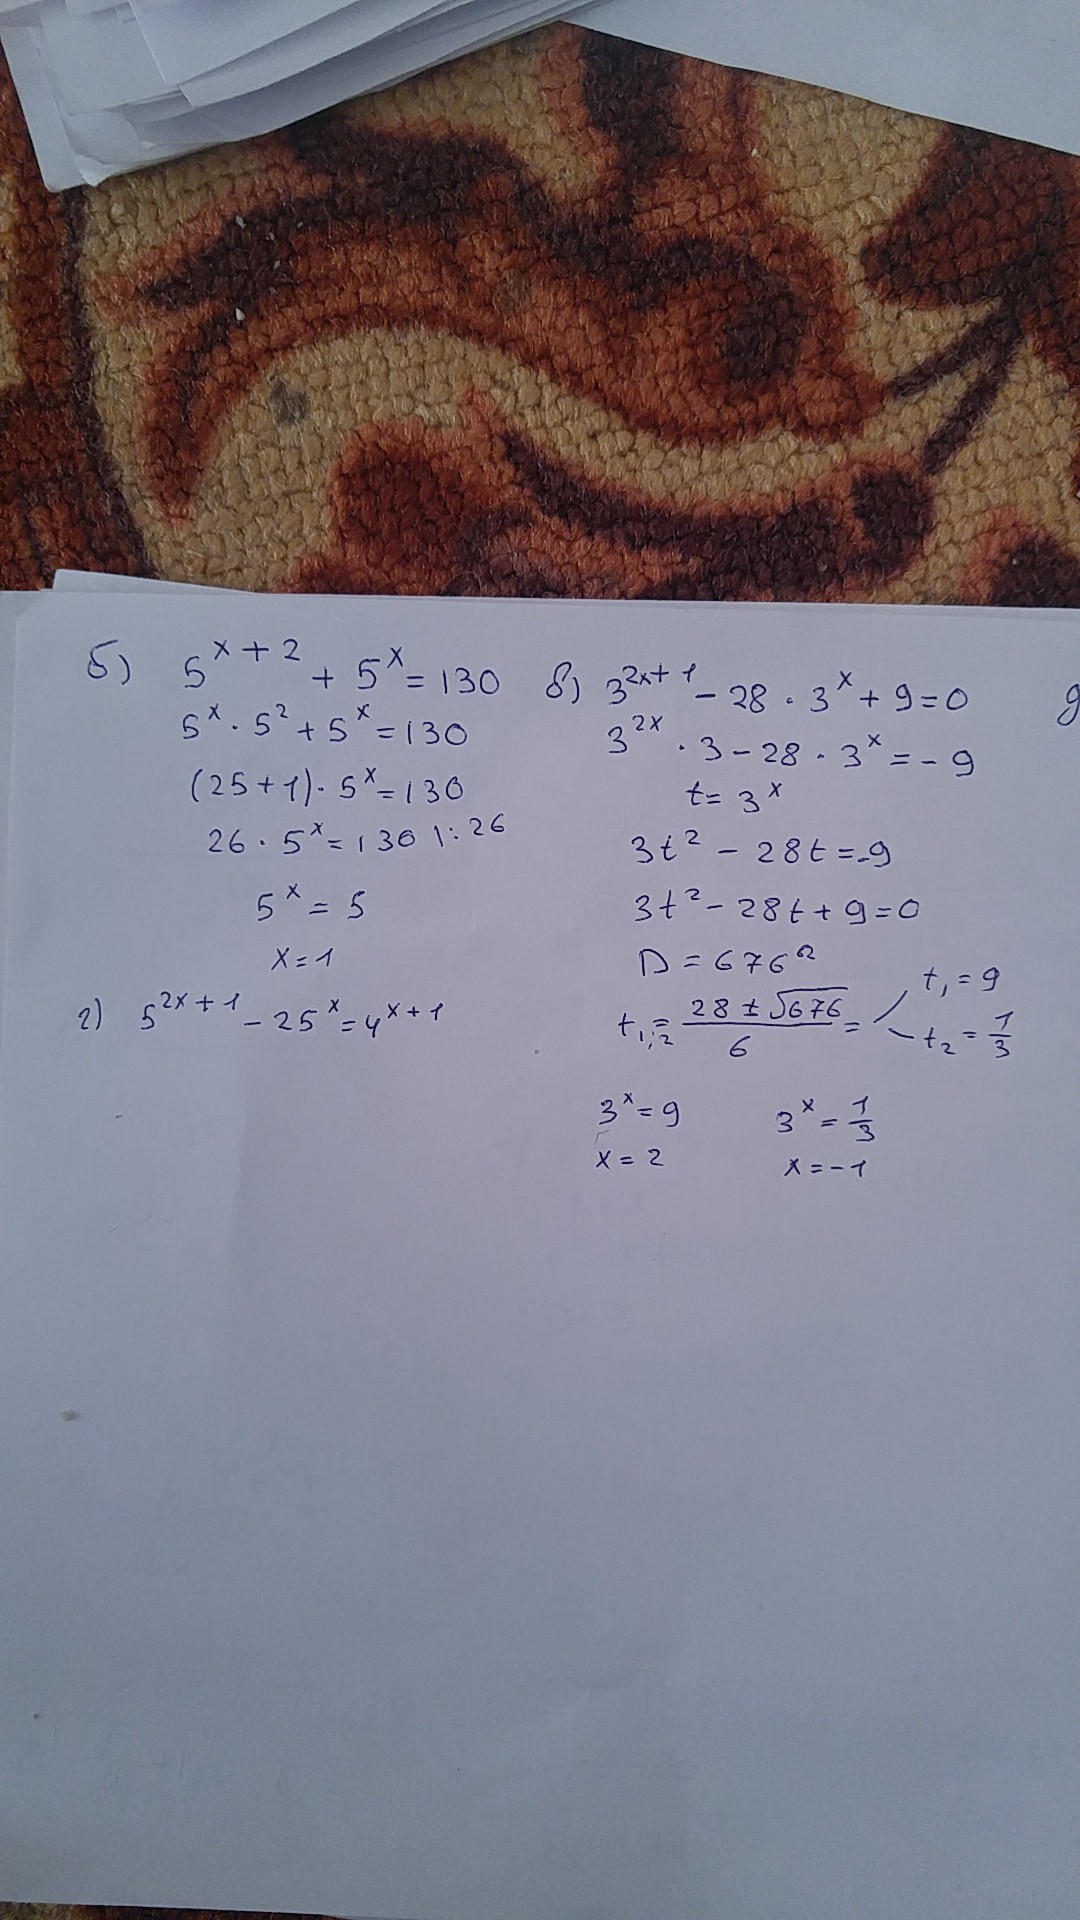 б) 5^{x+2} + 5^x = 130
5^x · 5^2 + 5^x = 130
(25+1) · 5^x = 130
26 · 5^x = 130 |: 26
5^x = 5
x = 1
г) 5^{2x+1} - 25^x = 4^{x+1}
в) 3^{2x+1} - 28 · 3^x + 9 = 0
3^{2x} · 3 - 28 · 3^x = - 9
t = 3^x
3t^2 - 28t = -9
3t^2 - 28t + 9 = 0
D = 676
t_{1,2} = \frac{28 ± √676}{6} = t_1 = 9
t_2 = \frac{1}{3}
3^x = 9 3^x = \frac{1}{3}
x = 2 x = -1